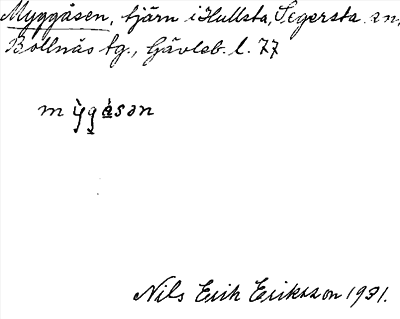 Myggåsen, tjärn i Hullsta, Segersta sn,
Bollnäs tg., Gävleb. l. 77
mỳgåsən
Nils Erik Eriksson 1931.